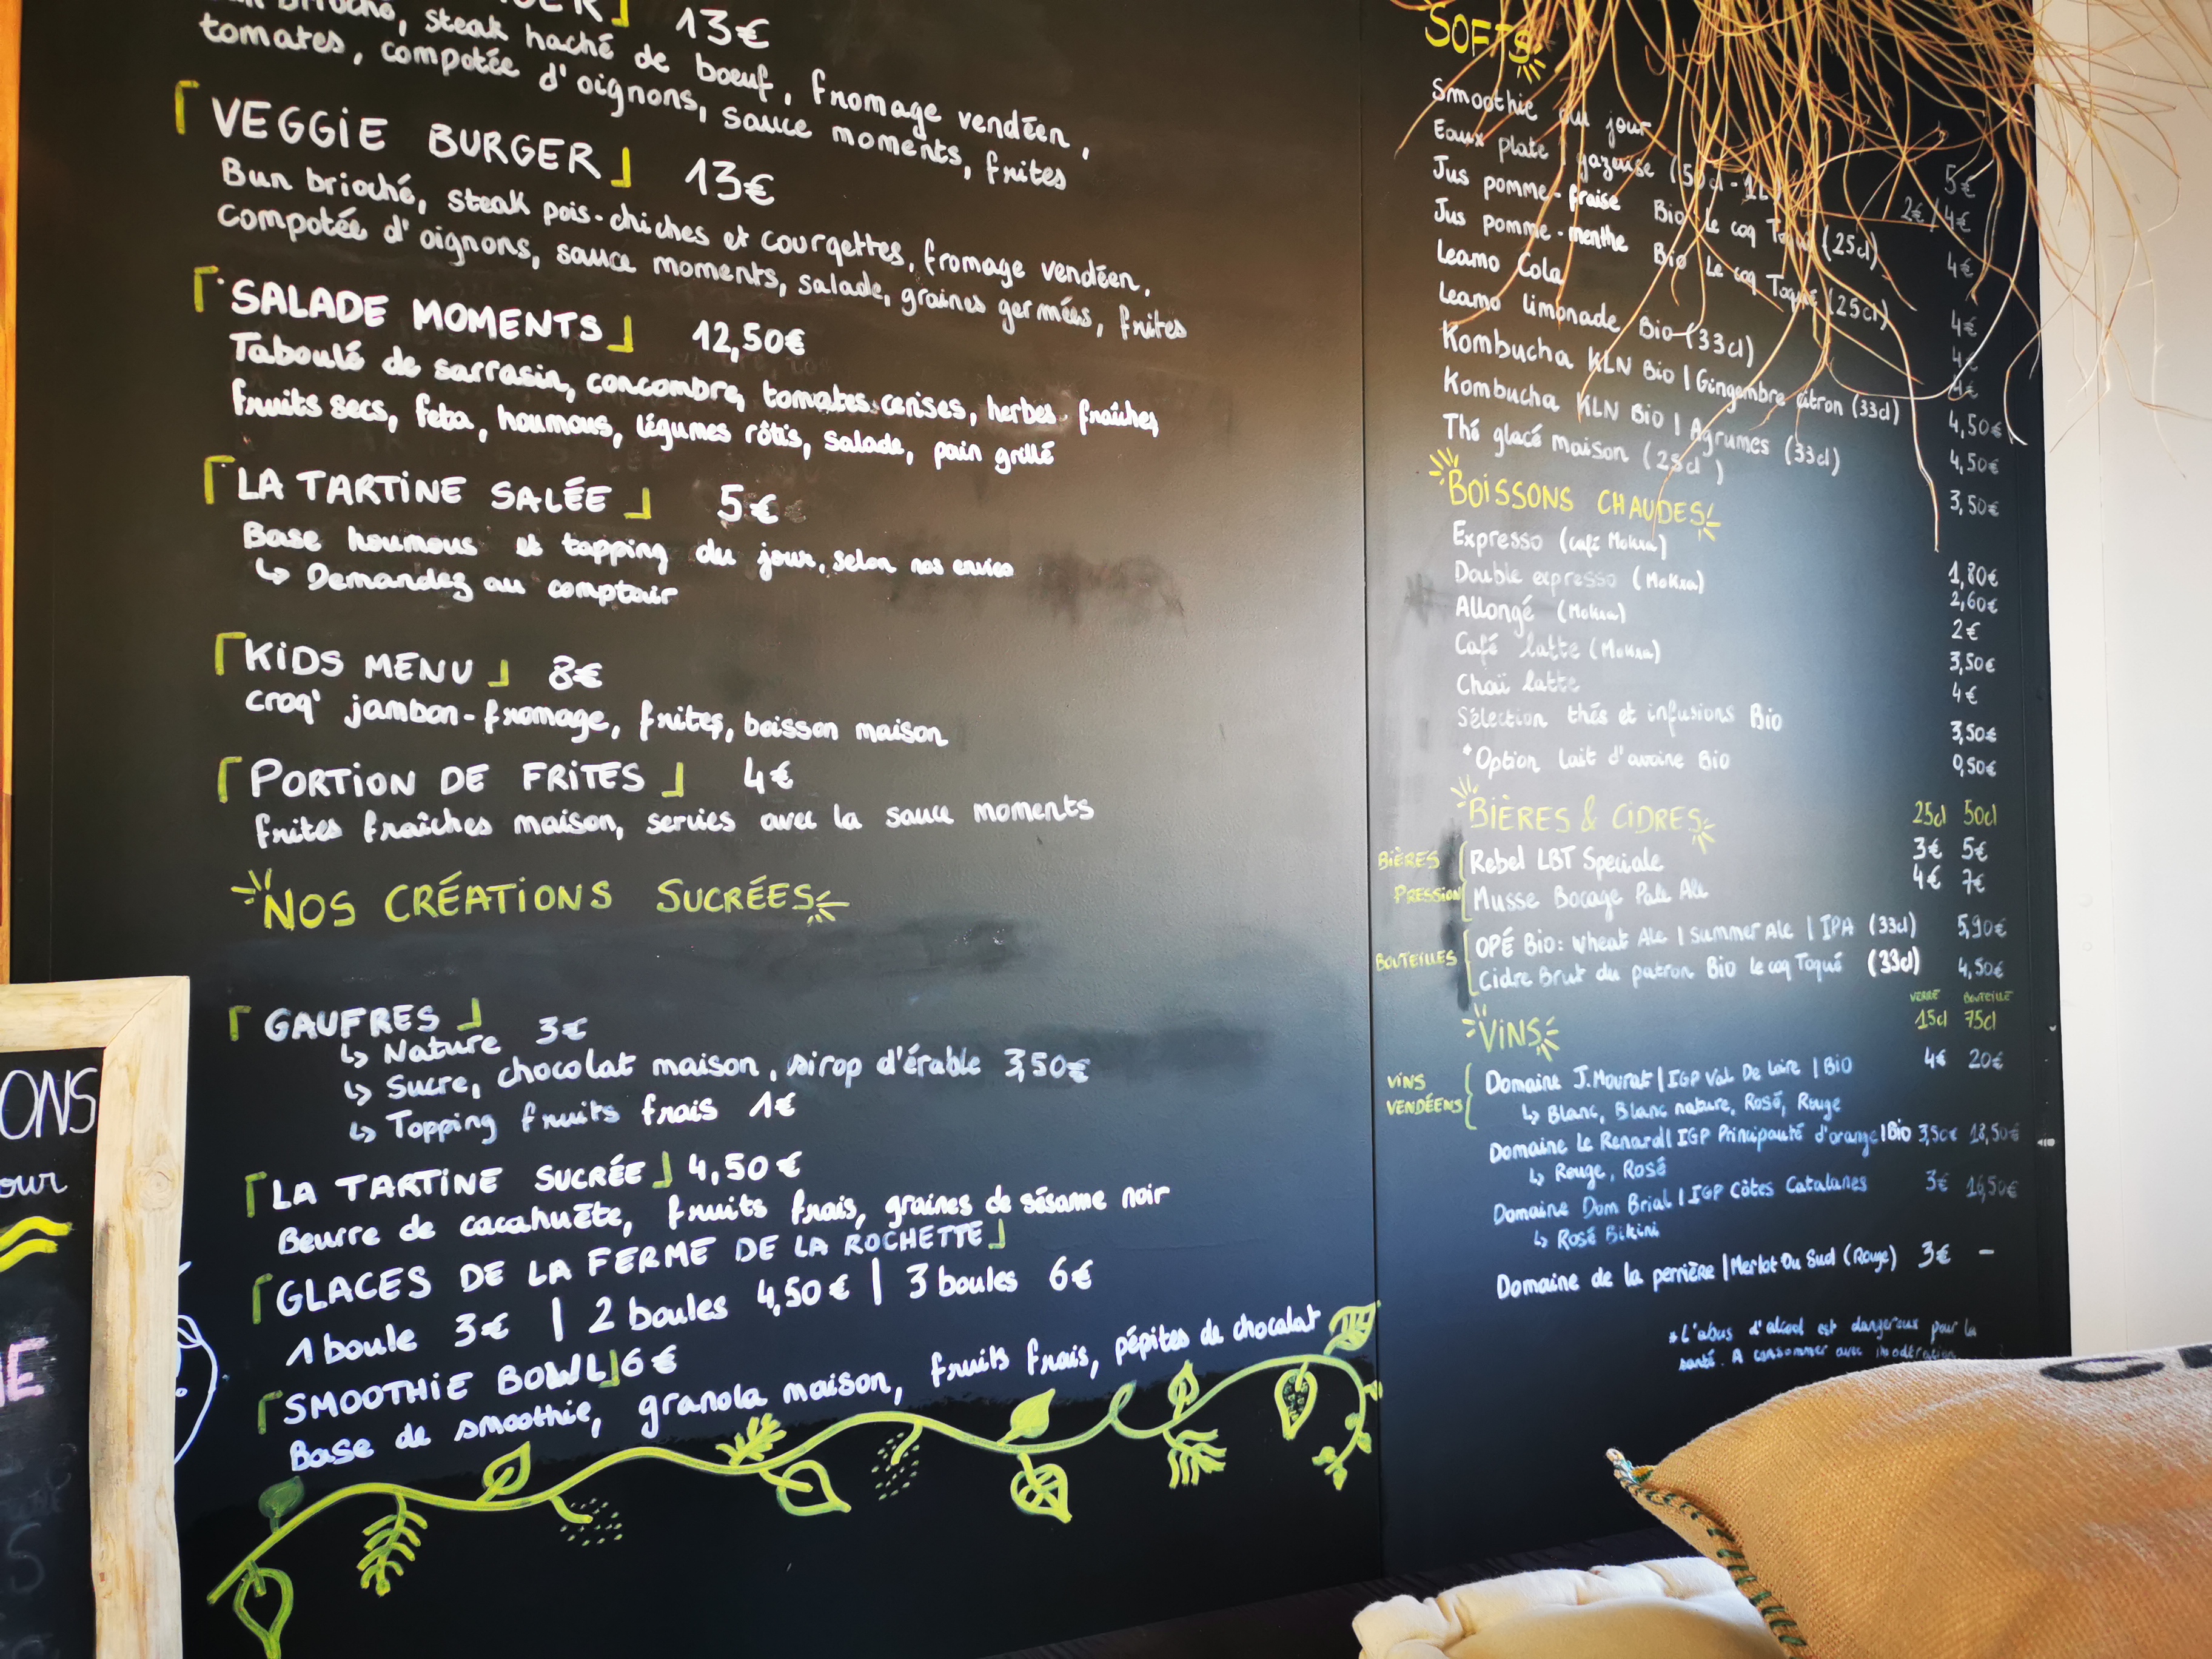 13€
brioché, steak haché de boeuf, fromage vendéen,
tomates, compotée d'oignons, sauce moments, frites
VEGGIE BURGER 13€
Bun brioché, steak pois-chiches et courgettes, fromage vendéen,
compotée d'oignons, sauce moments, salade, graines germées, frites
SALADE MOMENTS 12,50€
Taboulé de sarrasin, concombre, tomates cerises, herbes fraîches
fruits secs, feta, houmous, légumes rôtis, salade, pain grillé
LA TARTINE SALÉE 5€
Base houmous et topping du jour, selon nos envies
↳ Demandez au comptoir
KIDS MENU 8€
croq' jambon-fromage, frites, boisson maison
PORTION DE FRITES 4€
frites fraîches maison, servies avec la sauce moments
NOS CRÉATIONS SUCRÉES
GAUFRES
↳ Nature 3€
↳ Sucre, chocolat maison, sirop d'érable 3,50€
↳ Topping fruits frais 1€
LA TARTINE SUCRÉE 4,50€
Beurre de cacahuète, fruits frais, graines de sésame noir
GLACES DE LA FERME DE LA ROCHETTE
1 boule 3€ | 2 boules 4,50€ | 3 boules 6€
SMOOTHIE BOWL 6€
Base de smoothie, granola maison, fruits frais, pépites de chocolat
SOFTS
Smoothie du jour 5€
Eaux plate | gazeuse (50cl - 1L) 2€ / 4€
Jus pomme-fraise Bio Le coq Toqué (25cl) 4€
Jus pomme-menthe Bio Le coq Toqué (25cl) 4€
Leamo Cola 4€
Leamo limonade Bio (33cl) 4€
Kombucha KLN Bio | Gingembre citron (33cl) 4,50€
Kombucha KLN Bio | Agrumes (33cl) 4,50€
Thé glacé maison (25cl) 3,50€
BOISSONS CHAUDES
Expresso (café Mokxa) 1,80€
Double expresso (Mokxa) 2,60€
Allongé (Mokxa) 2€
Café latte (Mokxa) 3,50€
Chaï latte 4€
Sélection thés et infusions Bio 3,50€
*Option lait d'avoine Bio 0,50€
BIÈRES & CIDRES 25cl 50cl
BIÈRES PRESSION
Rebel LBT Speciale 3€ 5€
Musse Bocage Pale Ale 4€ 7€
BOUTEILLES
OPÉ Bio: Wheat Ale | Summer Ale | IPA (33cl) 5,90€
Cidre Brut du patron Bio le coq Toqué (33cl) 4,50€
VERRE BOUTEILLE
VINS 15cl 75cl
VINS VENDÉENS
Domaine J.Mourat | IGP Val De Loire | Bio 4€ 20€
↳ Blanc, Blanc nature, Rosé, Rouge
Domaine Le Renard | IGP Principauté d'orange | Bio 3,50€ 18,50€
↳ Rouge, Rosé
Domaine Dom Brial | IGP Côtes Catalanes 3€ 16,50€
↳ Rosé Bikini
Domaine de la perrière | Merlot Du Sud (Rouge) 3€ -
*L'abus d'alcool est dangereux pour la
santé. A consommer avec modération
ONS
our